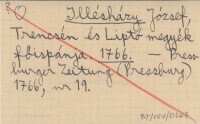 Illésházy József,
Trencsén és Liptó megyék
főispánja. 1766. Press-
burger Zeitung (Pressburg)
1766, nr 19.